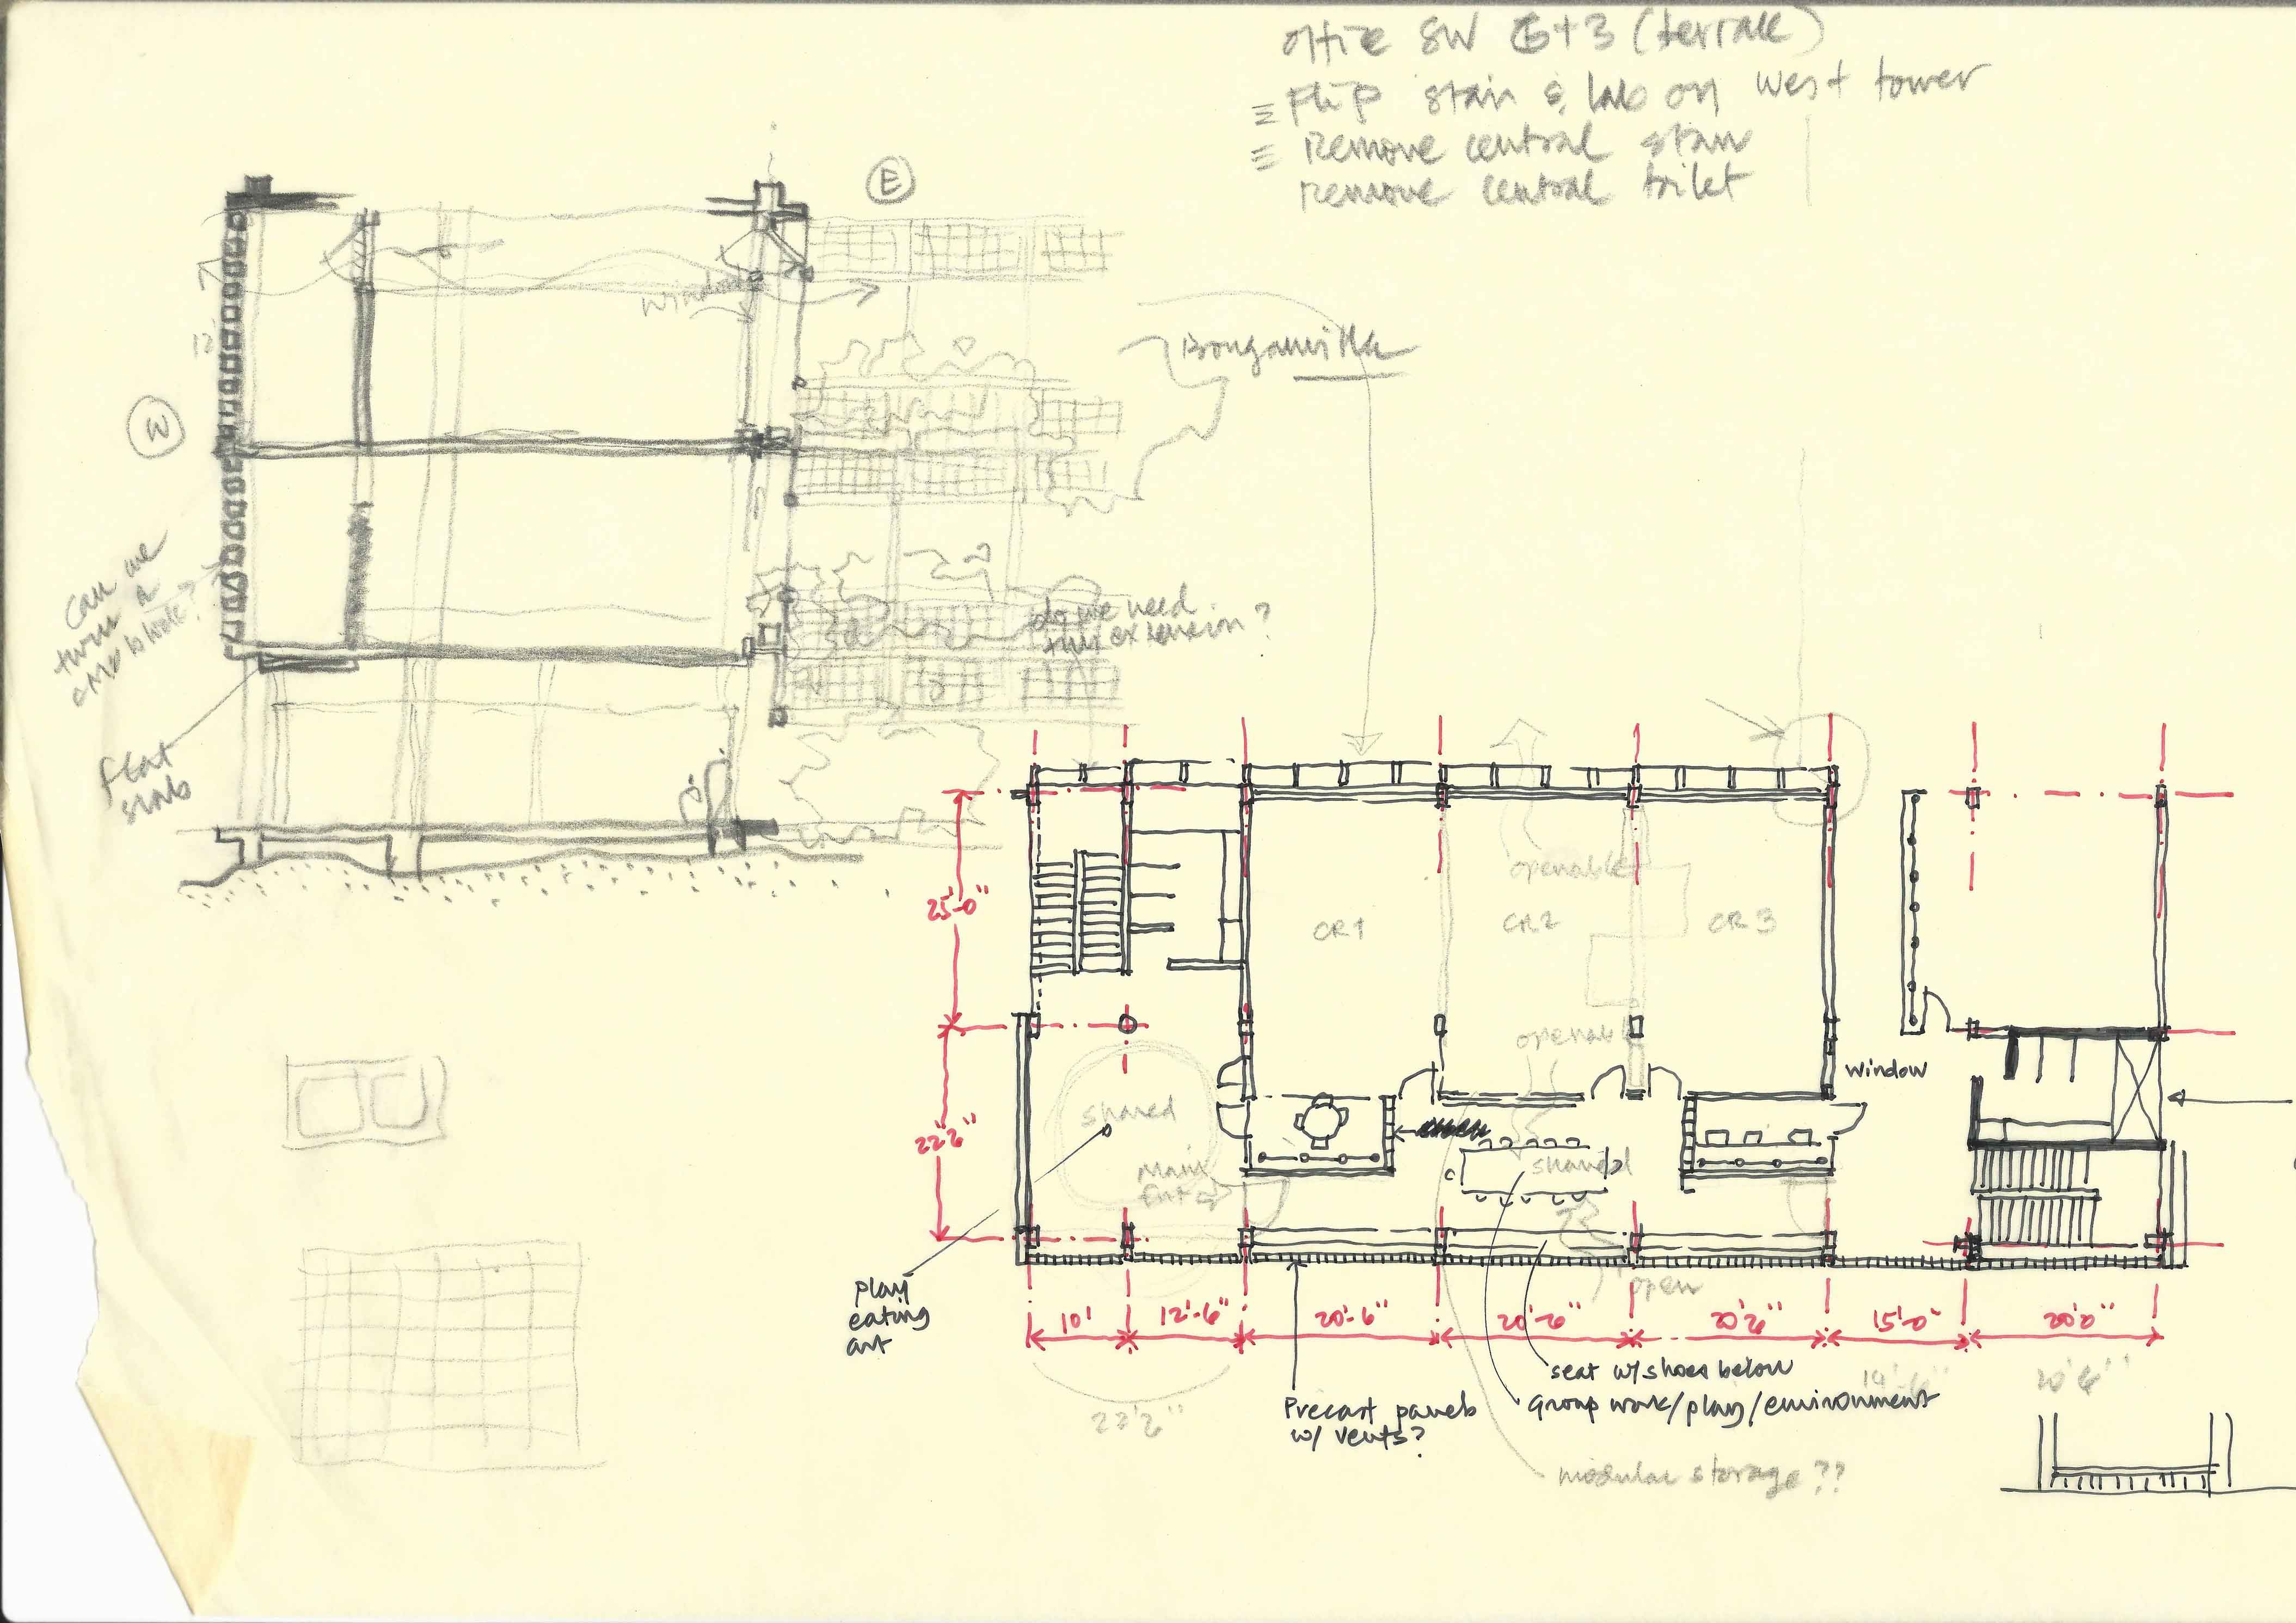 office SW G+3 (terrace)
Flip stair & lab on west tower
Remove central stair
remove central toilet
E
window
Bouganvilla
12'
W
Can we
turn a
cmu block?
do we need
this extension?
flat
slab
openable
25'-0"
CR1
CR2
CR3
openable
window
shared
22'6"
shared
Main
Ent
open
play
eating
art
10'
12'-6"
20'-6"
20'-6"
20'6"
15'-0"
20'0"
seat w/shoes below
14'-6"
20'6"
Group work/play/environment
22'6"
Precast panels
w/ vents?
modular storage??